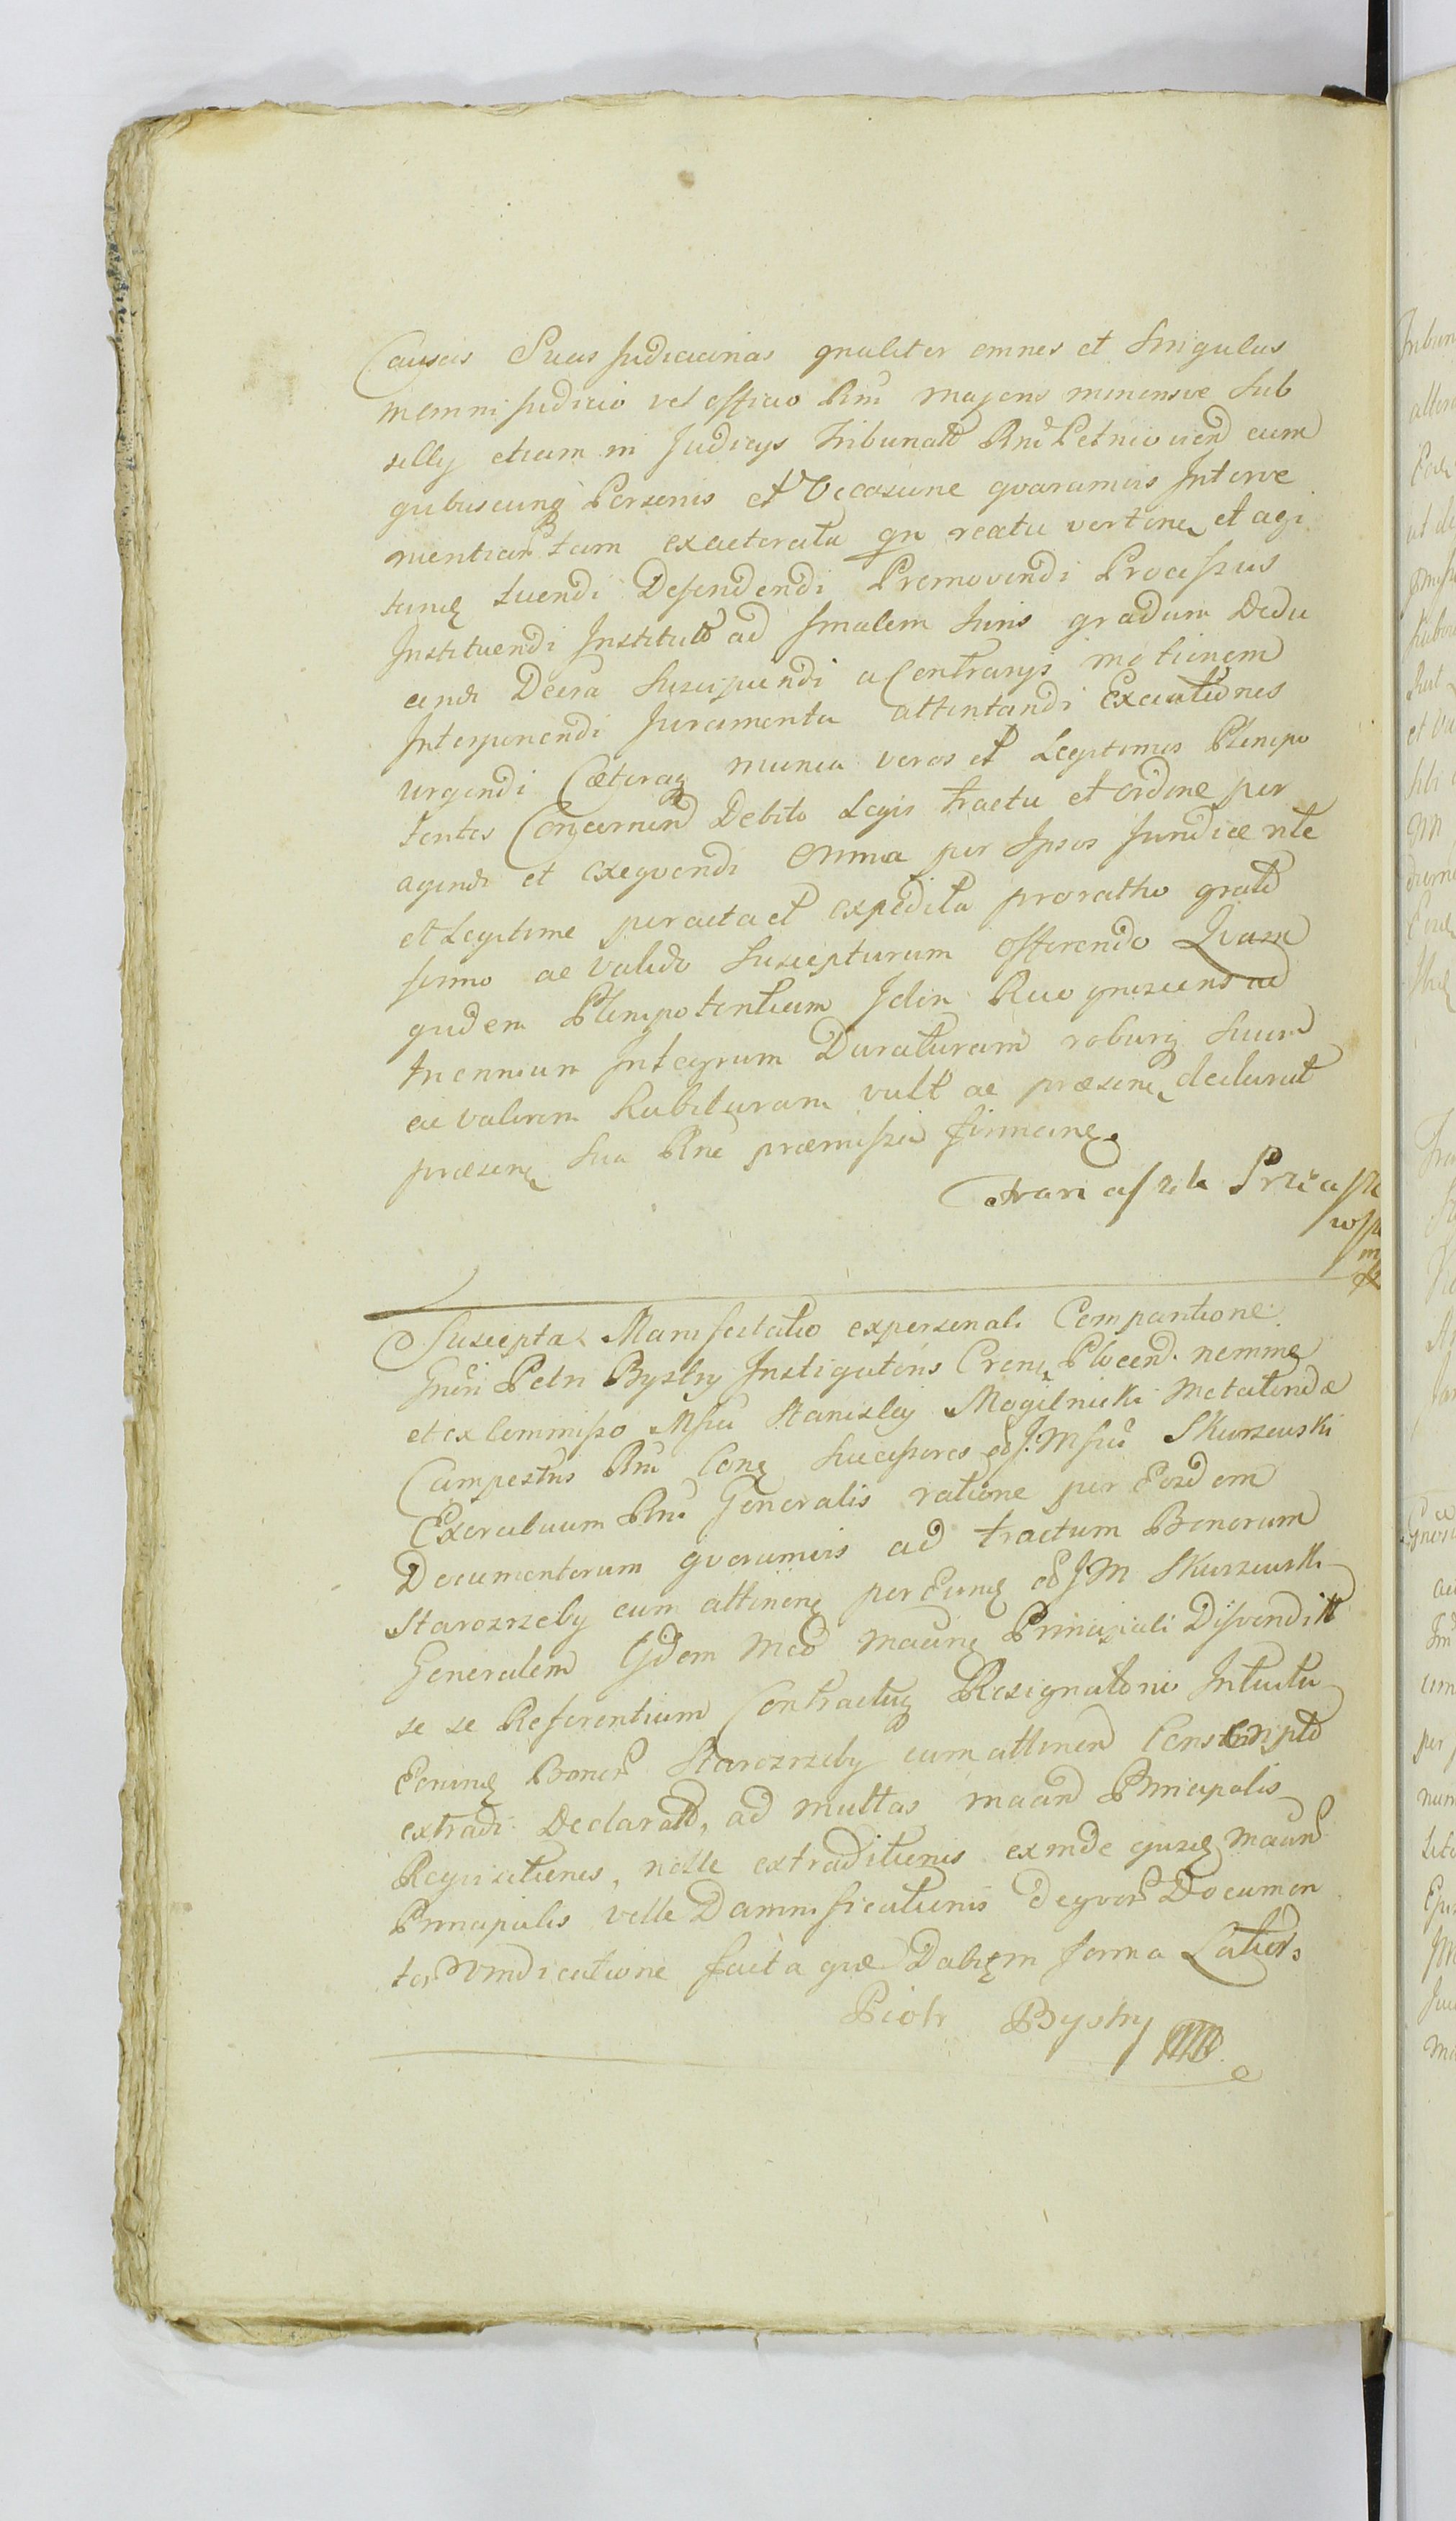 Causas Suas Judiciarias gnaliter omnes et Singulas
in omni Judicio vel officio Rni majoris minorisve Sub
sellÿ etiam in Judicÿs Tribunalb Rni Petricovien cum
quibuscunq Personis et Occasione quarumvis Interve
nientiar tam ex actoratu qn reatu verten et agi
tan tuendi Defendendi Promovendi Processus
Instituendi Institutos ad finalem Juris gradum Dedu
cendi Decra Suscipiendi a Contrarÿs motionem
Interponendi Juramenta attentandi Executiones
urgendi Caeteraq munia veros et Legitimos Plenipo
tentes Concernen Debito Legis tractu et ordine per
agendi et exequendi Omnia per Ipsos Juridice rite
et Legitime peracta et expedita pro ratho grato
firmo ac valido Suscepturum offerendo Quam
quidem Plenipotentiam Idem Recognoscens ad
Triennium Integrum Duraturam roburq Suum
ac valorem habituram vult ac praesen declarat
praesen Sua Rne praemissa firman

Suscepta Manifestatio ex personali Comparitione
Gnosi Petri Bystry Instigatoris Cren Plocen nomine
et ex commisso Msci Stanislai Mogilnicki Metatoris
Campestris Rni Con Successores J. M sci Skurzewski
Exercituum Rni Generalis ratione per Eosdem
Documentorum quorumvis ad tractum Bonorum
Starozrzeby cum attinen per Eund J M Skurzewski
Generalem Eidem Mco Principali Disvendit
se se Referentium Contractuq Resignatorio Intuitu
Eorund Bonor Starozrzeby cum attinen Conscripto
extradi Declarato, ad multas Principalis
Requisitiones, nolle extraditionis exinde ejusd
Principalis velle Damnificationis de quor Documen
tor vindicatione facta quae Dabr in forma Latiori
Piotr Bystry mp